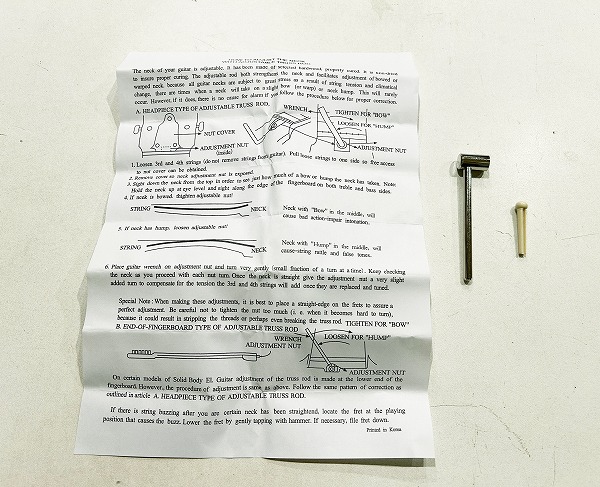 The neck of your guitar is adjustable. It has been made of selected hardwood, properly cured. It is
to insure proper curing. The adjustable rod both strengthens the neck and facilitates adjustment of bowed or
warped neck, because all guitar necks are subject to great stress as a result of string tension and climatical
change, there are times when a neck will take on a slight bow (or warp) or neck hump. This will rarely
occur. However, if it does, there is no cause for alarm if you follow the procedure below for proper correction.
A. HEADPIECE TYPE OF ADJUSTABLE TRUSS ROD.
WRENCH
TIGHTEN FOR "BOW"
LOOSEN FOR "HUMP"
NUT COVER
ADJUSTMENT NUT
(inside)
ADJUSTMENT NUT
1. Loosen 3rd and 4th strings (do not remove strings from guitar). Pull loose strings to one side so free access
to nut cover can be obtained.
2. Remove cover so neck adjustment nut is exposed.
3. Sight down the neck from the top in order to see just how much of a bow or hump the neck has taken. Note:
Hold the neck up at eye level and sight along the edge of the fingerboard on both treble and bass sides.
4. If neck is bowed, thighten adjustable nut!
STRING
NECK
Neck with "Bow" in the middle, will
cause bad action-impair intonation.
5. If neck has hump, loosen adjustable nut!
STRING
NECK
Neck with "Hump" in the middle, will
cause-string rattle and false tones.
6. Place guitar wrench on adjustment nut and turn very gently (small fraction of a turn at a time). Keep checking
the neck as you proceed with each nut turn. Once the neck is straight give the adjustment nut a very slight
added turn to compensate for the tension the 3rd and 4th strings will add once they are replaced and tuned.
Special Note : When making these adjustments, it is best to place a straight-edge on the frets to assure a
perfect adjustment. Be careful not to tighten the nut too much (i. e. when it becomes hard to turn),
because it could result in stripping the threads or perhaps even breaking the truss rod.
B. END-OF-FINGERBOARD TYPE OF ADJUSTABLE TRUSS ROD
TIGHTEN FOR "BOW"
WRENCH
LOOSEN FOR "HUMP"
ADJUSTMENT NUT
ADJUSTMENT NUT
On certain models of Solid Body El. Guitar adjustment of the truss rod is made at the lower end of the
fingerboard. However, the procedure of adjustment is same as above. Follow the same pattern of correction as
outlined in article A. HEADPIECE TYPE OF ADJUSTABLE TRUSS ROD.
If there is string buzzing after you are certain neck has been straightend, locate the fret at the playing
position that causes the buzz. Lower the fret by gently tapping with hammer. If necessary, file fret down.
Printed in Korea